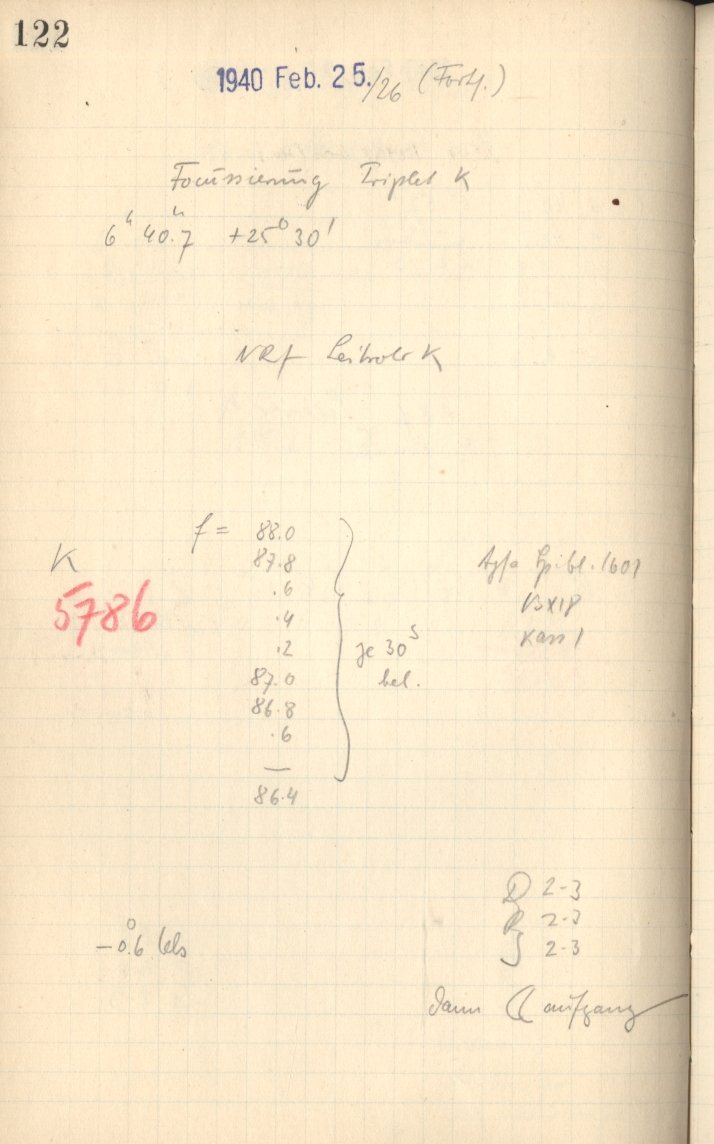 122
1940 Feb. 25./26 (Forts.)
Focussierung Triplet K
6ʰ 40.ᵐ7 +25° 30'
Leitrohr K
f = 88.0
87.8
.6
.4
.2
87.0
86.8
.6
—
86.4
je 30ˢ
bel.
K
5786
Agfa 1601
Kass 1
-0.°6 Cels
D 2-3
R 2-3
J 2-3
dann ☾ aufgang